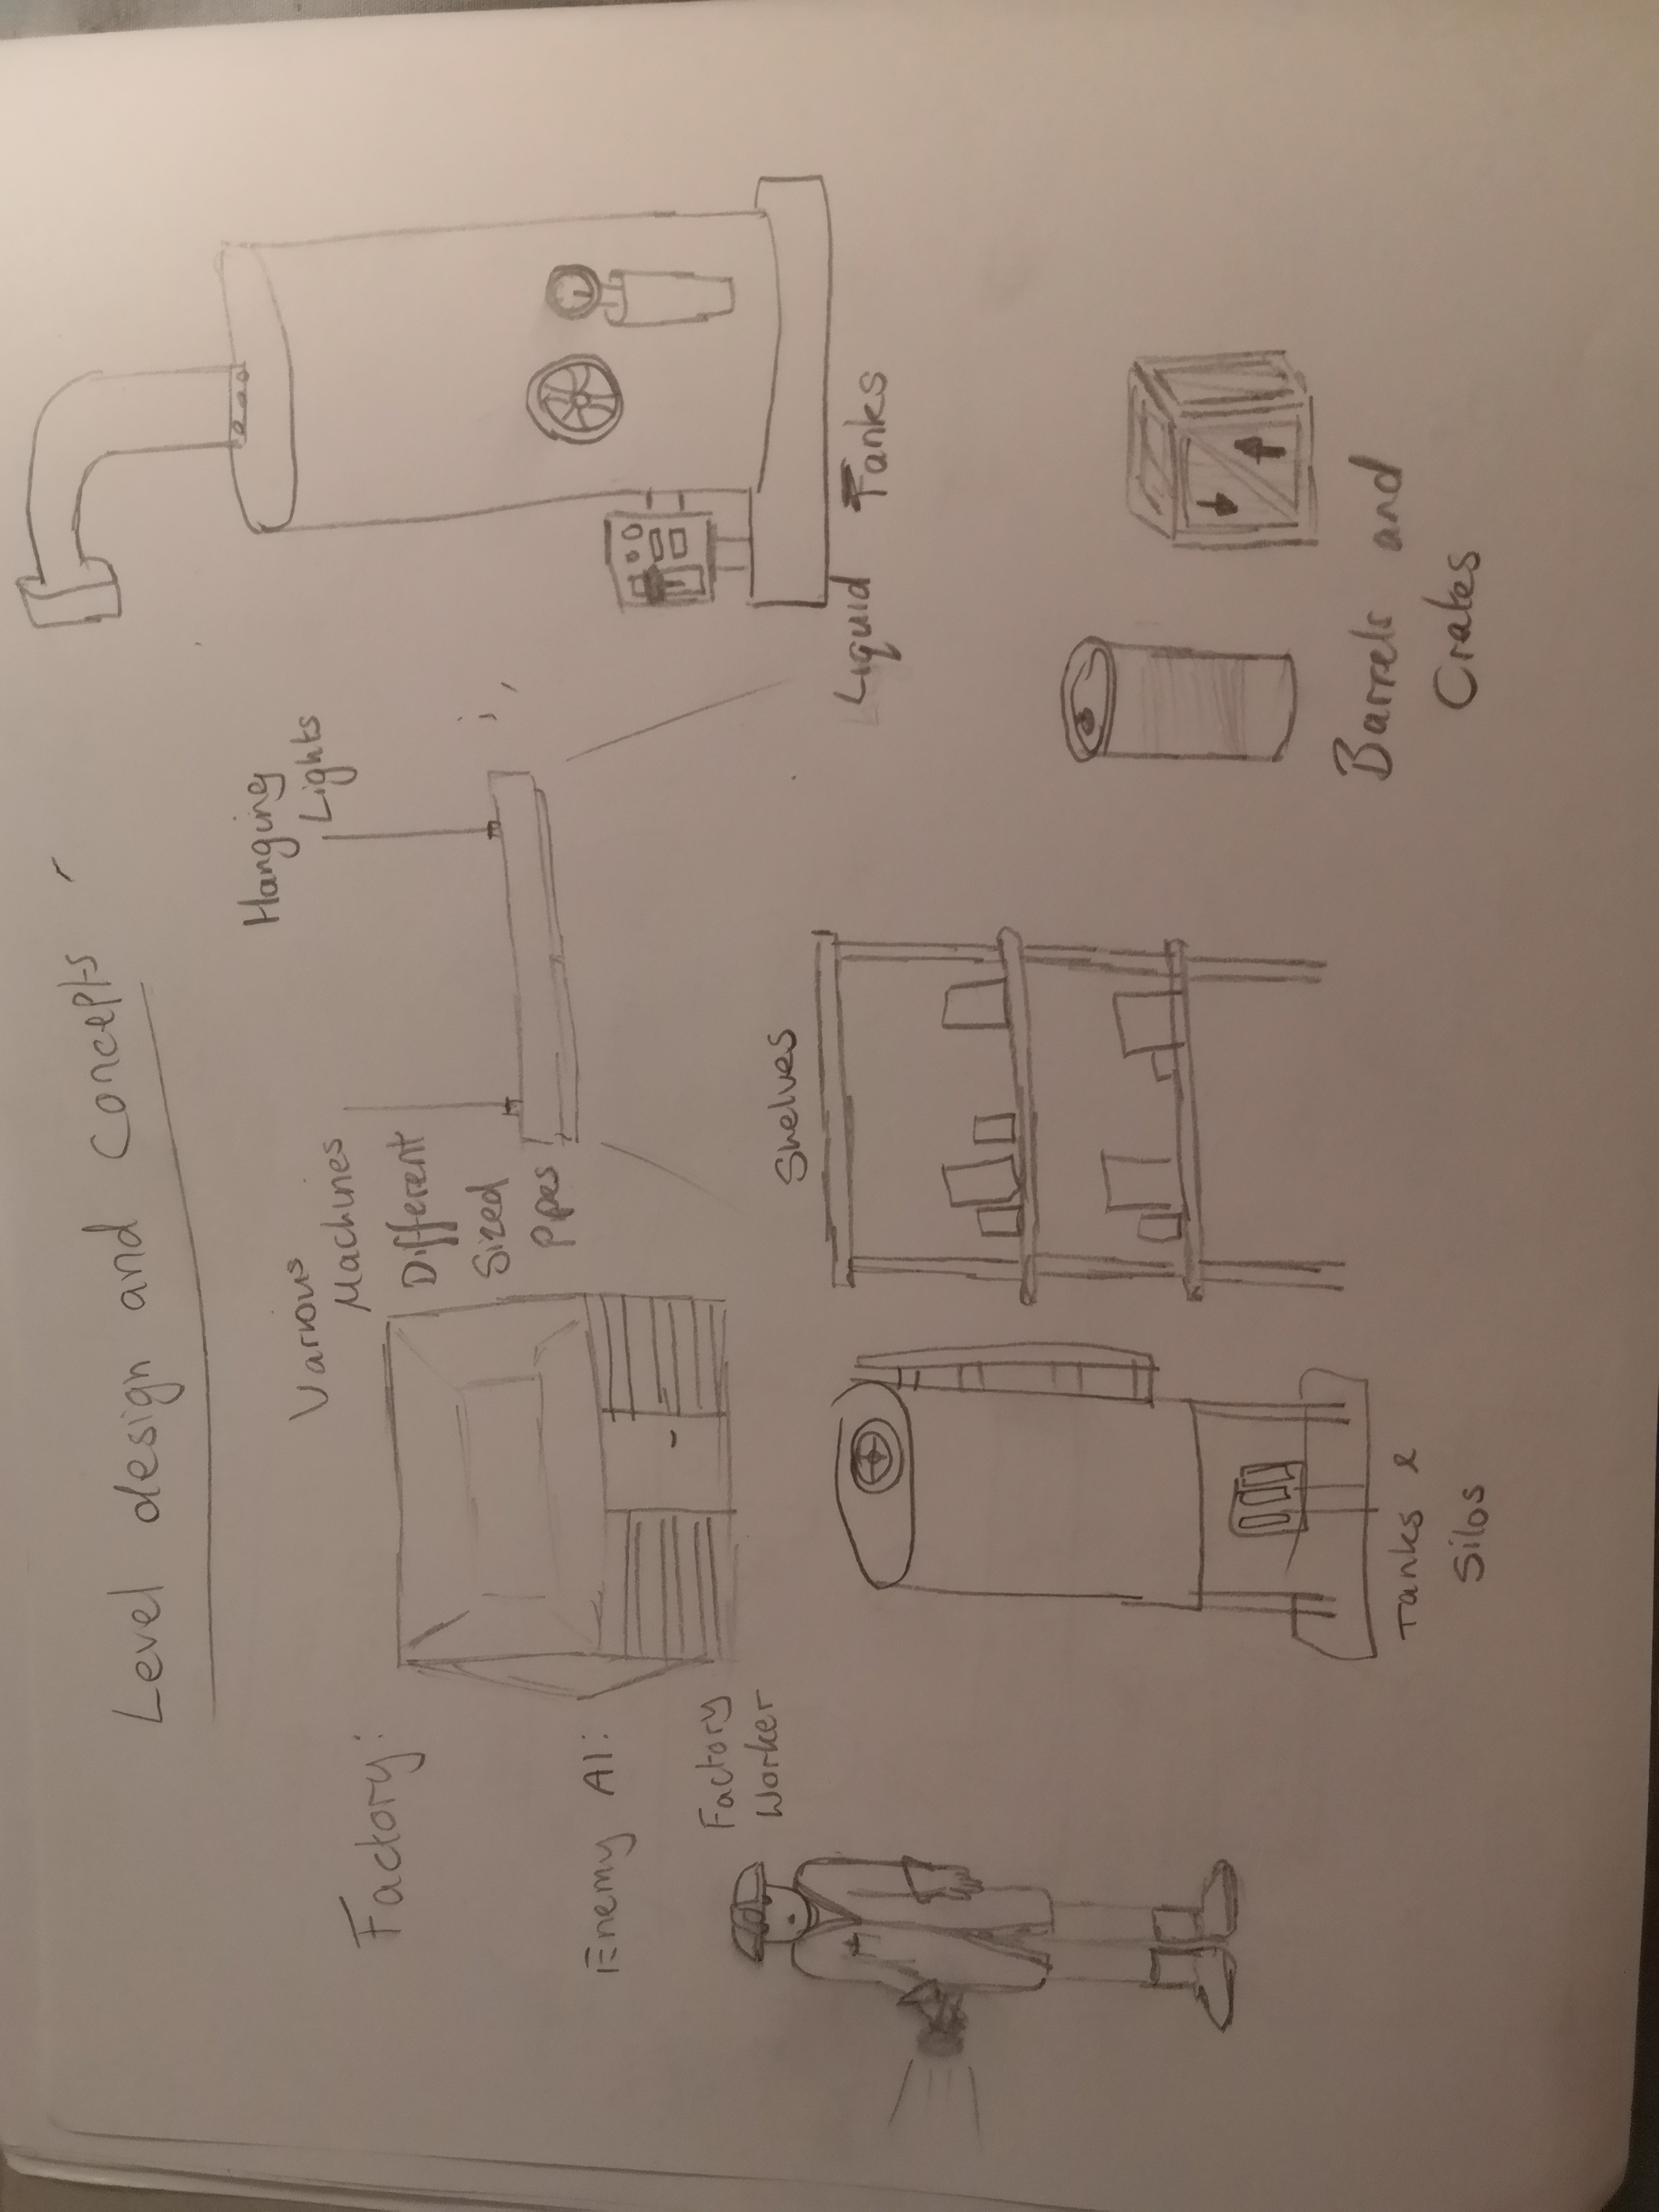 Level design and Concepts
Factory:
Various
Machines
Different
Sized
Pipes
Hanging
Lights
Enemy AI:
Factory
Worker
Shelves
Liquid Tanks
Tanks &
Silos
Barrels and
Crates